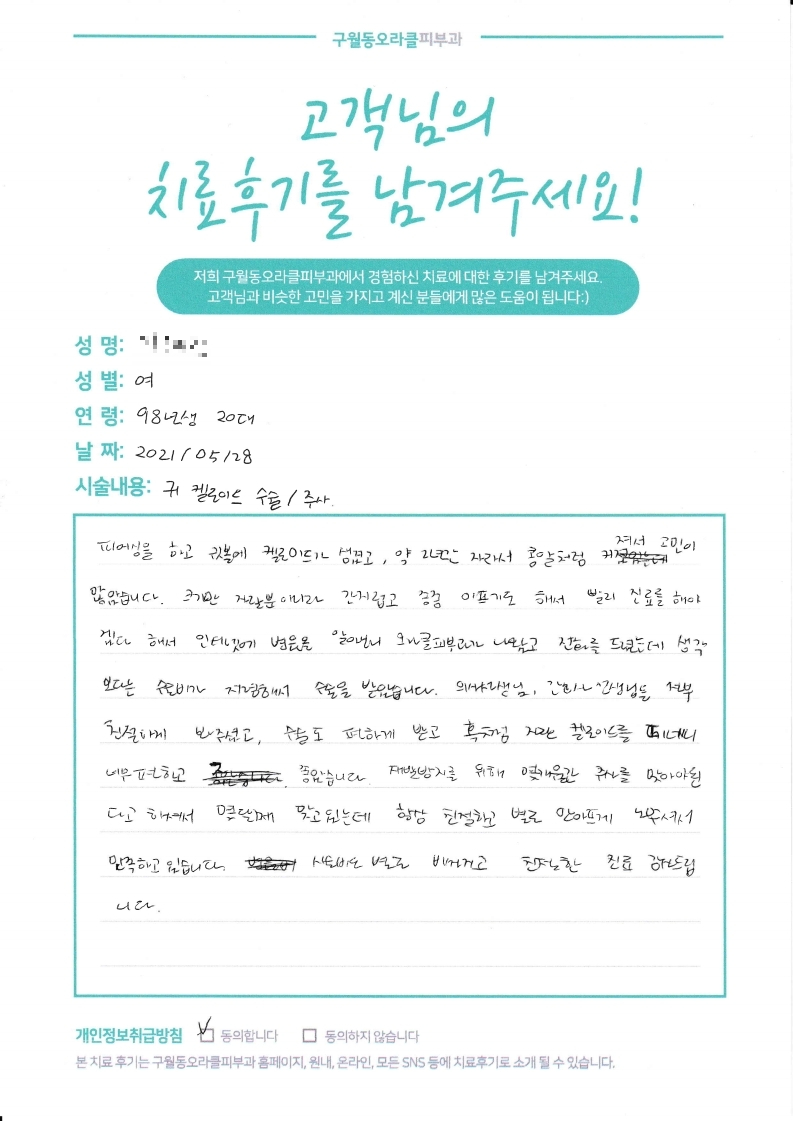 구월동오라클피부과
고객님의
치료후기를 남겨주세요!
저희 구월동오라클피부과에서 경험하신 치료에 대한 후기를 남겨주세요.
고객님과 비슷한 고민을 가지고 계신 분들에게 많은 도움이 됩니다:)
성 명:
성 별: 여
연 령: 98년생 20대
날 짜: 2021/05/28
시술내용: 귀 켈로이드 수술/주사.
피어싱을 하고 귓볼에 켈로이드가 생겼고, 약 2년간 자라서 콩알처럼 커져서 고민이
많았습니다. 크기만 자랄뿐 아니라 간지럽고 종종 아프기도 해서 빨리 진료를 해야
겠다 해서 인터넷에 병원을 알아보니 오라클피부과가 나왔고 진료를 드렸는데 생각
보다는 수술비가 저렴해서 수술을 받았습니다. 의사선생님, 간호사 선생님들 전부
친절하게 봐주셨고, 수술도 편하게 받고 혹처럼 자란 켈로이드를 떼내니
너무 편하고 좋았습니다. 재발방지를 위해 몇개월간 주사를 맞아야된
다고 하셔서 몇달째 맞고 있는데 항상 친절하고 별로 안아프게 놔주셔서
만족하고 있습니다. 시술비도 별로 비싸지않고 친절한 진료 감사드립
니다.
개인정보취급방침 동의합니다 동의하지 않습니다
본 치료 후기는 구월동오라클피부과 홈페이지, 원내, 온라인, 모든 SNS 등에 치료후기로 소개 될 수 있습니다.